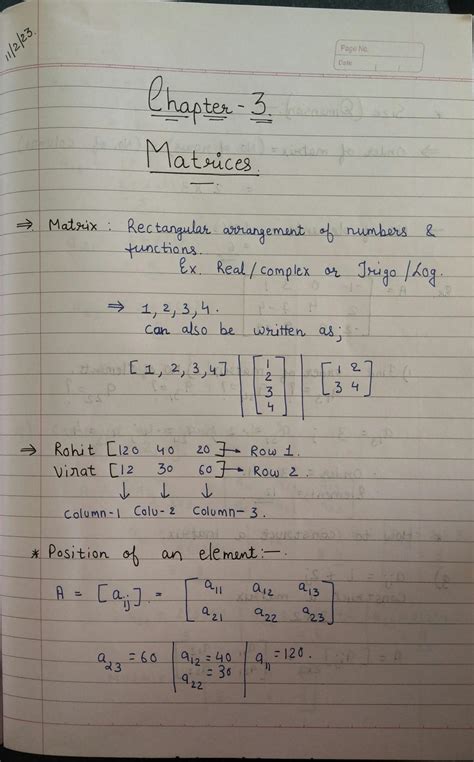 11/2/23.
Page No.
Date
Chapter - 3.
Matrices.
⇒ Matrix : Rectangular arrangement of numbers &
functions.
Ex. Real/complex or Trigo/Log.
⇒ 1, 2, 3, 4.
can also be written as;
[1, 2, 3, 4] | [1 | [1 2
2 | 3 4]
3
4]
⇒ Rohit [120 40 20] → Row 1.
Virat [12 30 60] → Row 2.
↓ ↓ ↓
Column-1 Colu-2 Column-3.
* Position of an element:—
A = [aij] = [a11 a12 a13
a21 a22 a23]
a23 = 60 | a12 = 40 | a11 = 120.
a22 = 30